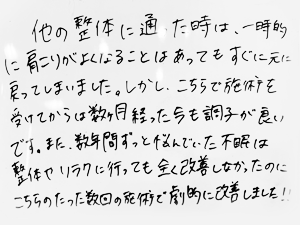 他の整体に通った時は、一時的
に肩こりがよくなることはあってもすぐに元に
戻ってしまいました。しかし、こちらで施術を
受けてからは数ヶ月経った今も調子が良い
です。また、数年間ずっと悩んでいた不眠は
整体やリラクに行っても全く改善しなかったのに
こちらのたった数回の施術で劇的に改善しました!!